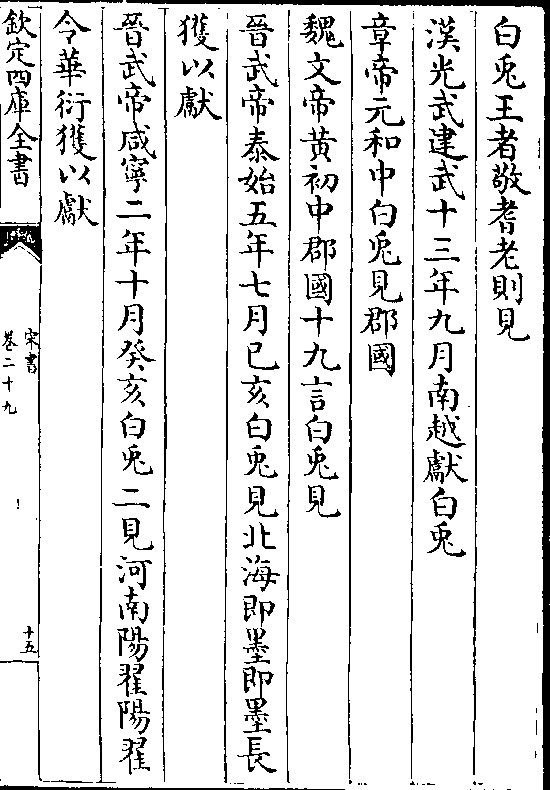 白兎王者敬耆老則見
漢光武建武十三年九月南越獻白兎
章帝元和中白兎見郡國
魏文帝黃初中郡國十九言白兎見
晉武帝泰始五年七月己亥白兎見北海即墨即墨長
獲以獻
晉武帝咸寧二年十月癸亥白兎二見河南陽翟陽翟
令華衍獲以獻
欽定四庫全書
宋書
卷二十九
十五